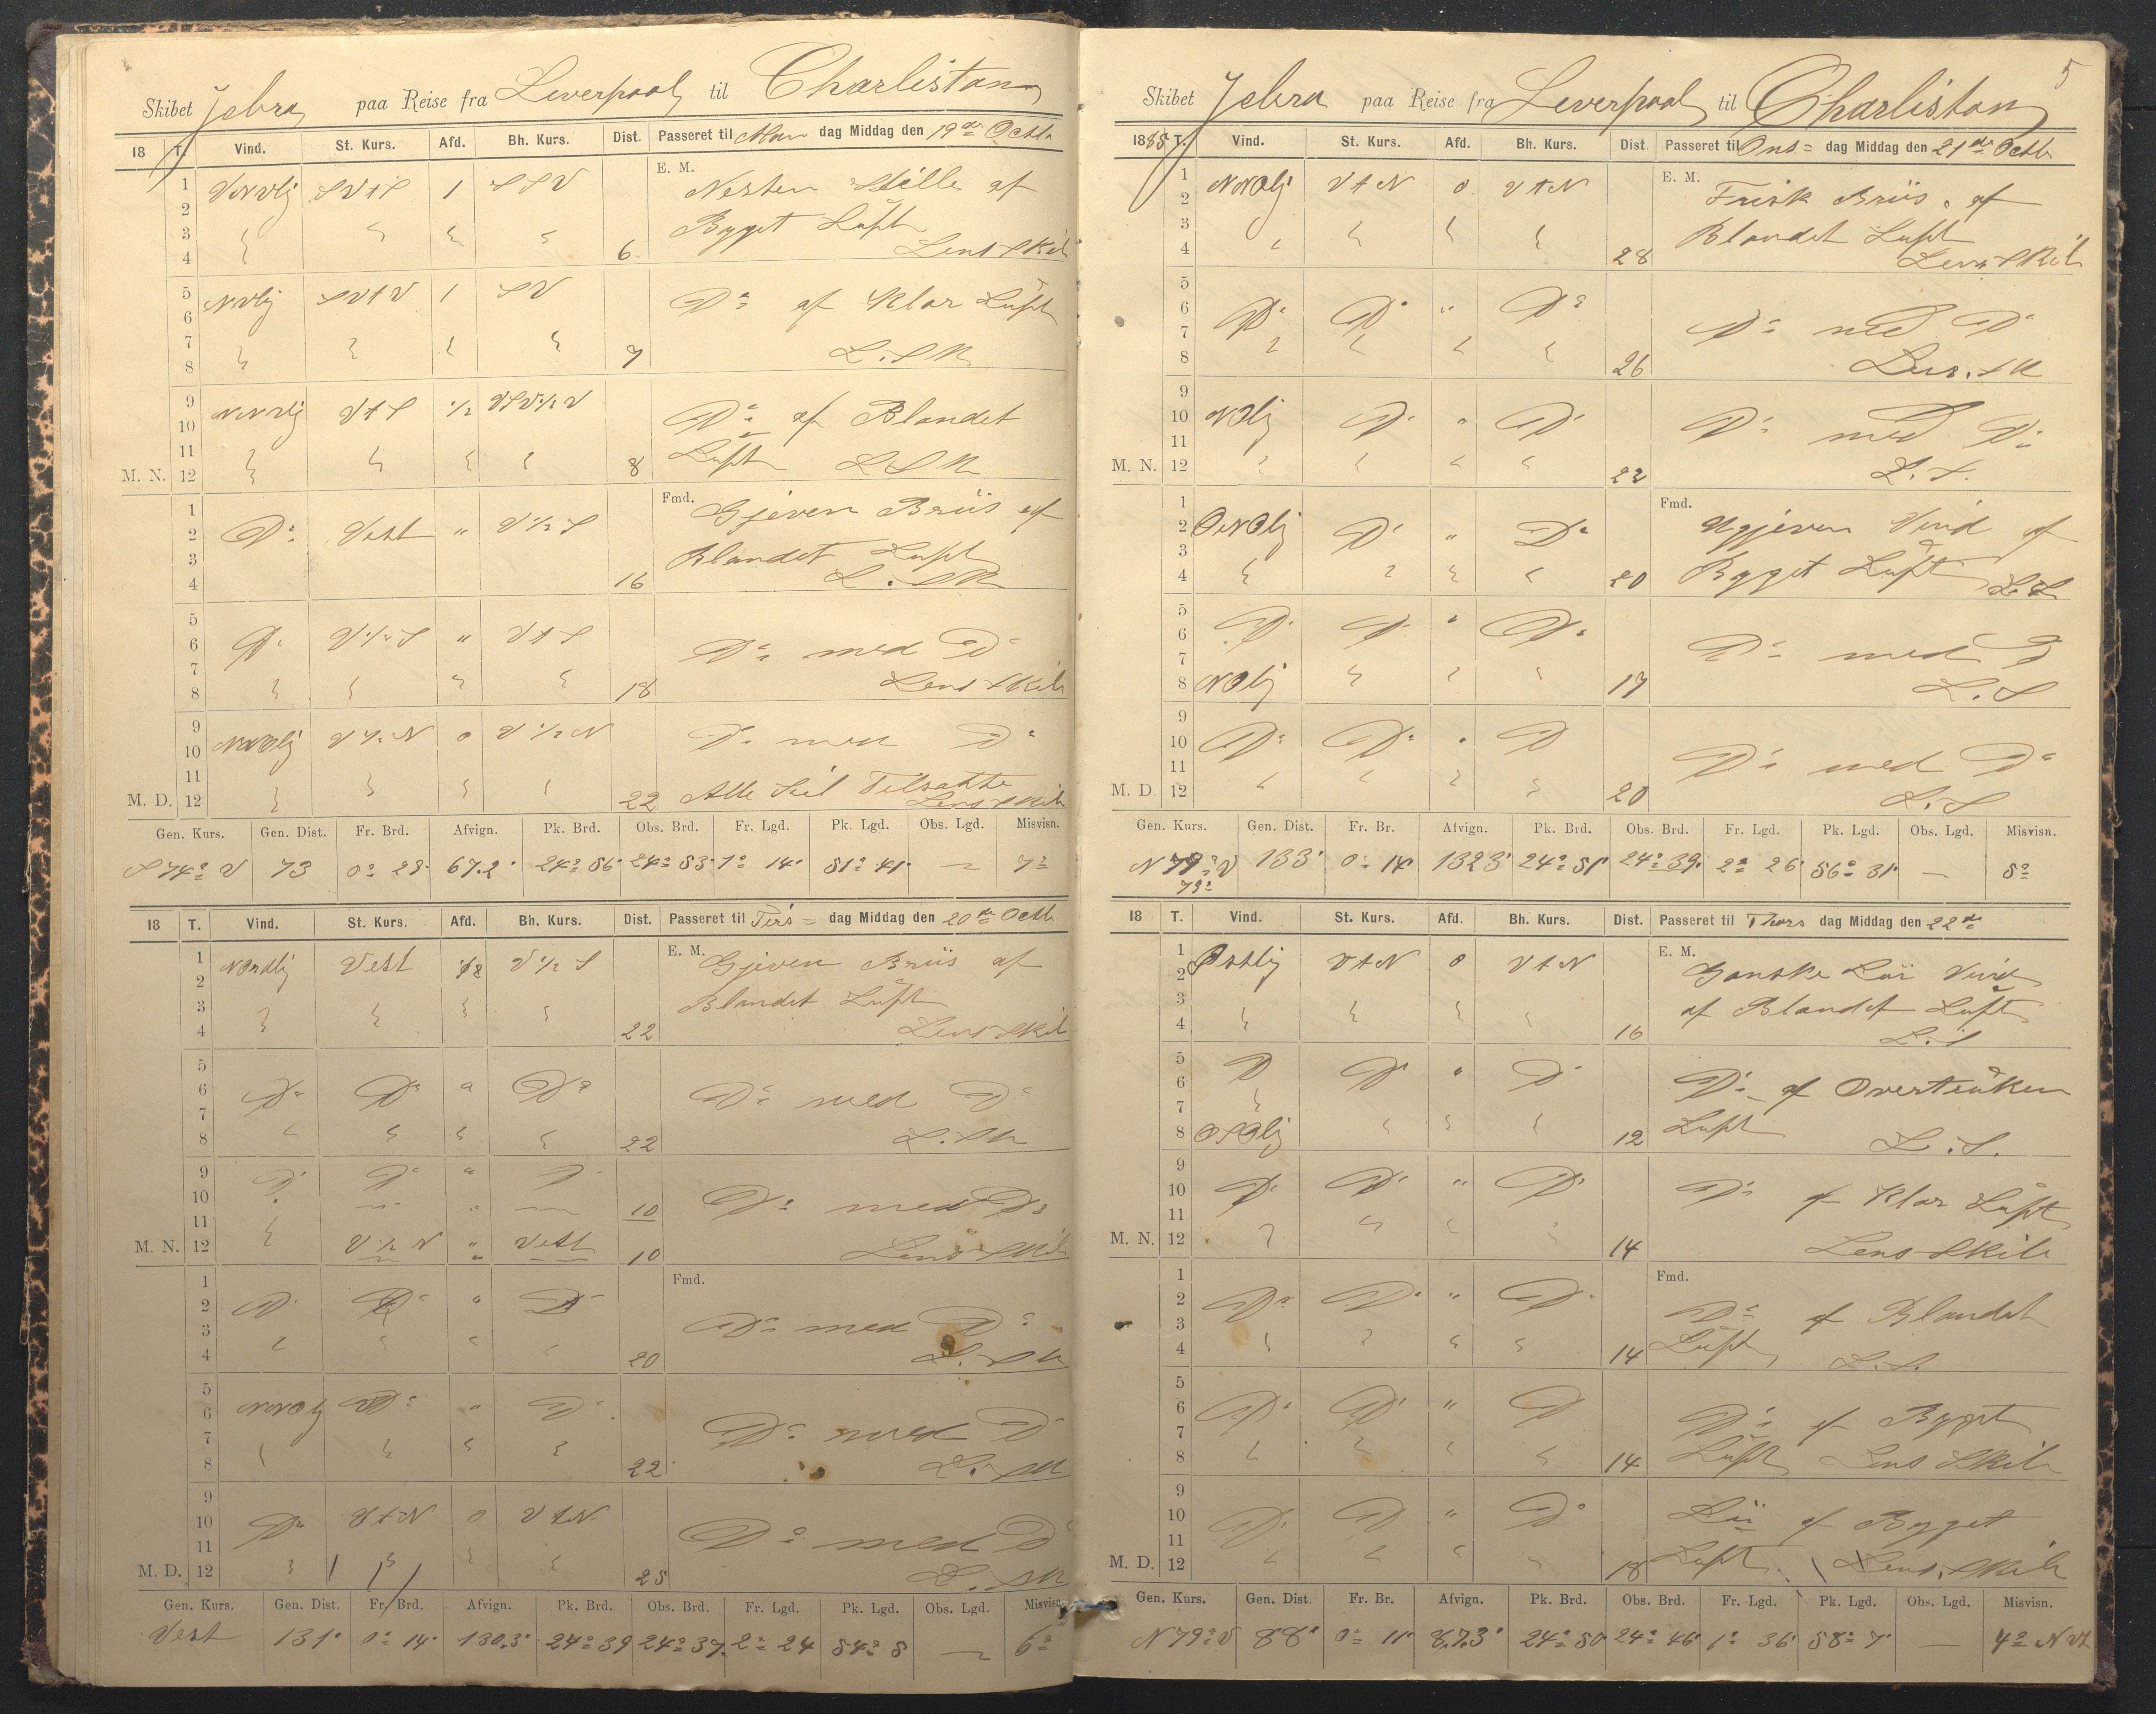 Skibet Jebra paa Reise fra Leverpool til Charliston
18 T. Vind. St. Kurs. Afd. Bh. Kurs. Dist. Passeret til Man dag Middag den 19de Octb
E. M.
1 VNVlj SVtS 1 SSV Nesten Stille af
2
3 Bygget Luft
4 6 Lens & Kib
5 NVlj SVtV 1 SV
6 Do af Klar Luft
7
8 7 L. & K
9 NNVlj VtS ½ VSV½V
10 Do af Blandet
11
M. N. 12 8 Luft L & K
Fmd.
1 Gjeven Briis af
2 Do Vest " V½S
3 Blandet Luft
4 16 L. & K
5
6 Do V½S " VtS Do med Do
7
8 18 Lens & Kib
9
10 NNOlj V½N 0 V½N Do med Do
11 Alle Seil Tilsatte
M. D. 12 22 Lens & Kib
Gen. Kurs. Gen. Dist. Fr. Brd. Afvign. Pk. Brd. Obs. Brd. Fr. Lgd. Pk. Lgd. Obs. Lgd. Misvisn.
S 74° V 73 0° 23' 67.2' 24° 56' 24° 53' 1° 14' 51° 41' — 7°
18 T. Vind. St. Kurs. Afd. Bh. Kurs. Dist. Passeret til Tirs= dag Middag den 20de Octb
E. M.
1 Nordlj Vest V½S Gjeven Briis af
2
3 Blandet Luft
4 22 Lens & Kib
5
6 Do Do " Do Do med Do
7
8 22 L. & K
9 Do Do " Do
10 10 Do med Do
11
M. N. 12 V½N " Vest 10 Lens & Kib
Fmd.
1
2 Do Do " Do Do med Do
3
4 20 L. & K
5
6 NNOlj Do " Do Do med Do
7
8 22 L. & K
9
10 Do VtN 0 VtN Do med Do
11
M. D. 12 25 L. & K
Gen. Kurs. Gen. Dist. Fr. Brd. Afvign. Pk. Brd. Obs. Brd. Fr. Lgd. Pk. Lgd. Obs. Lgd. Misvisn.
Vest 131' 0° 14' 130.3' 24° 39 24° 37' 2° 24 54° 8 — 6°
5
Skibet Jebra paa Reise fra Leverpool til Charliston
1885 T. Vind. St. Kurs. Afd. Bh. Kurs. Dist. Passeret til Ons= dag Middag den 21de Octb
E. M.
1 NNOlj VtN 0 VtN Frisk Briis af
2
3 Blandet Luft
4 28 Lens & Kib
5
6 Do Do " Do Do med Do
7
8 26 Lens. & K
9
10 NOlj Do " Do Do med Do
11
M. N. 12 22 L. &.
Fmd.
1
2 ONOlj Do " Do Ugjeven Vind af
3
4 20 Bygget Luft L &
5
6 Do Do " Do Do med Do
7
8 NOlj 17 L. &
9
10 Do Do " Do Do med Do
11
M. D. 12 20 L. &
Gen. Kurs. Gen. Dist. Fr. Br. Afvign. Pk. Brd. Obs. Brd. Fr. Lgd. Pk. Lgd. Obs. Lgd. Misvisn.
N 79° V 133' 0° 14' 132.3' 24° 51' 24° 39' 2° 26' 56° 31' — 5°
18 T. Vind. St. Kurs. Afd. Bh. Kurs. Dist. Passeret til Thors dag Middag den 22de
E. M.
1 Østlig VtN 0 VtN Ganske Lüi Vind
2
3 af Blandet Luft
4 16 L. &
5
6 Do Do " Do Do af Overtrüken
7
8 OSOlj 12 Luft L. &.
9
10 Do Do " Do Do af Klar Luft
11
M. N. 12 14 Lens & Kib
Fmd.
1
2 Do Do " Do Do af Blandet
3
4 14 Luft L. &.
5
6 Do Do " Do Do af Bygget
7
8 14 Luft Lens & Kib
9
10 Do Do " Do Lüi af Bygget
11
M. D. 12 18 Luft. Lens. & Kib
Gen. Kurs. Gen. Dist. Fr. Br. Afvign. Pk. Brd. Obs. Brd. Fr. Lgd. Pk. Lgd. Obs. Lgd. Misvisn.
N 79° V 88' 0° 11' 87.3' 24° 50' 24° 46' 1° 36' 58° 7' — 4° N Vt